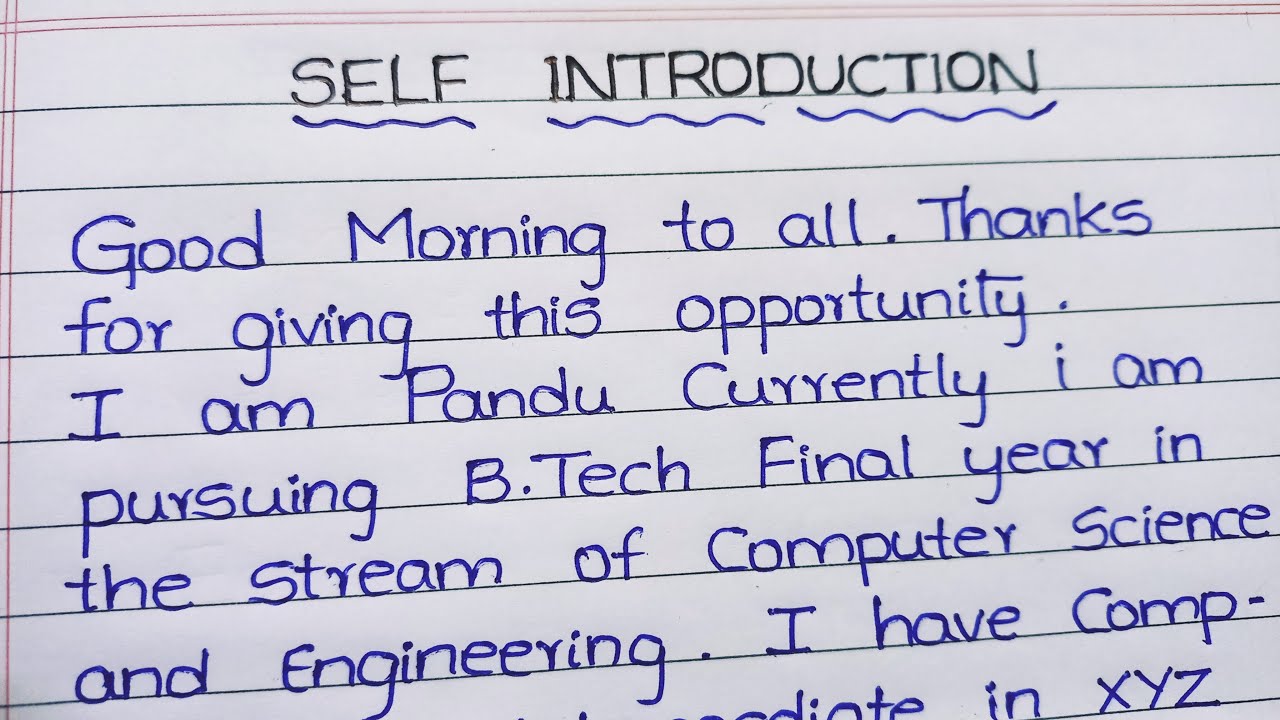 SELF INTRODUCTION
Good Morning to all. Thanks
for giving this opportunity.
I am Pandu Currently i am
pursuing B.Tech Final year in
the stream of Computer Science
and Engineering. I have Comp-
in XYZ